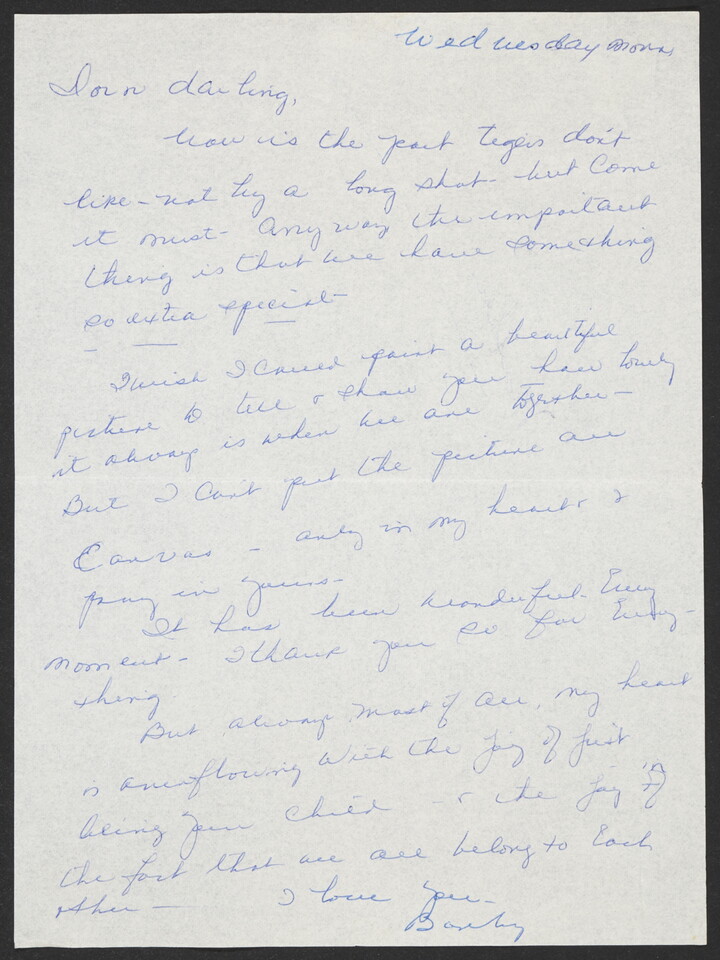 Wednesday morn.
darling,
Now is the part tigers don't
like - not by a long shot - but come
it must - Anyway the important
thing is that we have something
so extra special -
I wish I could paint a beautiful
picture to tell & show you how lovely
it always is when we are together -
But I can't put the picture on
Canvas - only in my heart & I
pray in yours -
It has been wonderful - Every
moment - I thank you so for Every-
thing.
But always, most of all, my heart
is overflowing with the joy of just
being your child - & the joy of
the fact that we all belong to Each
other - I love you -